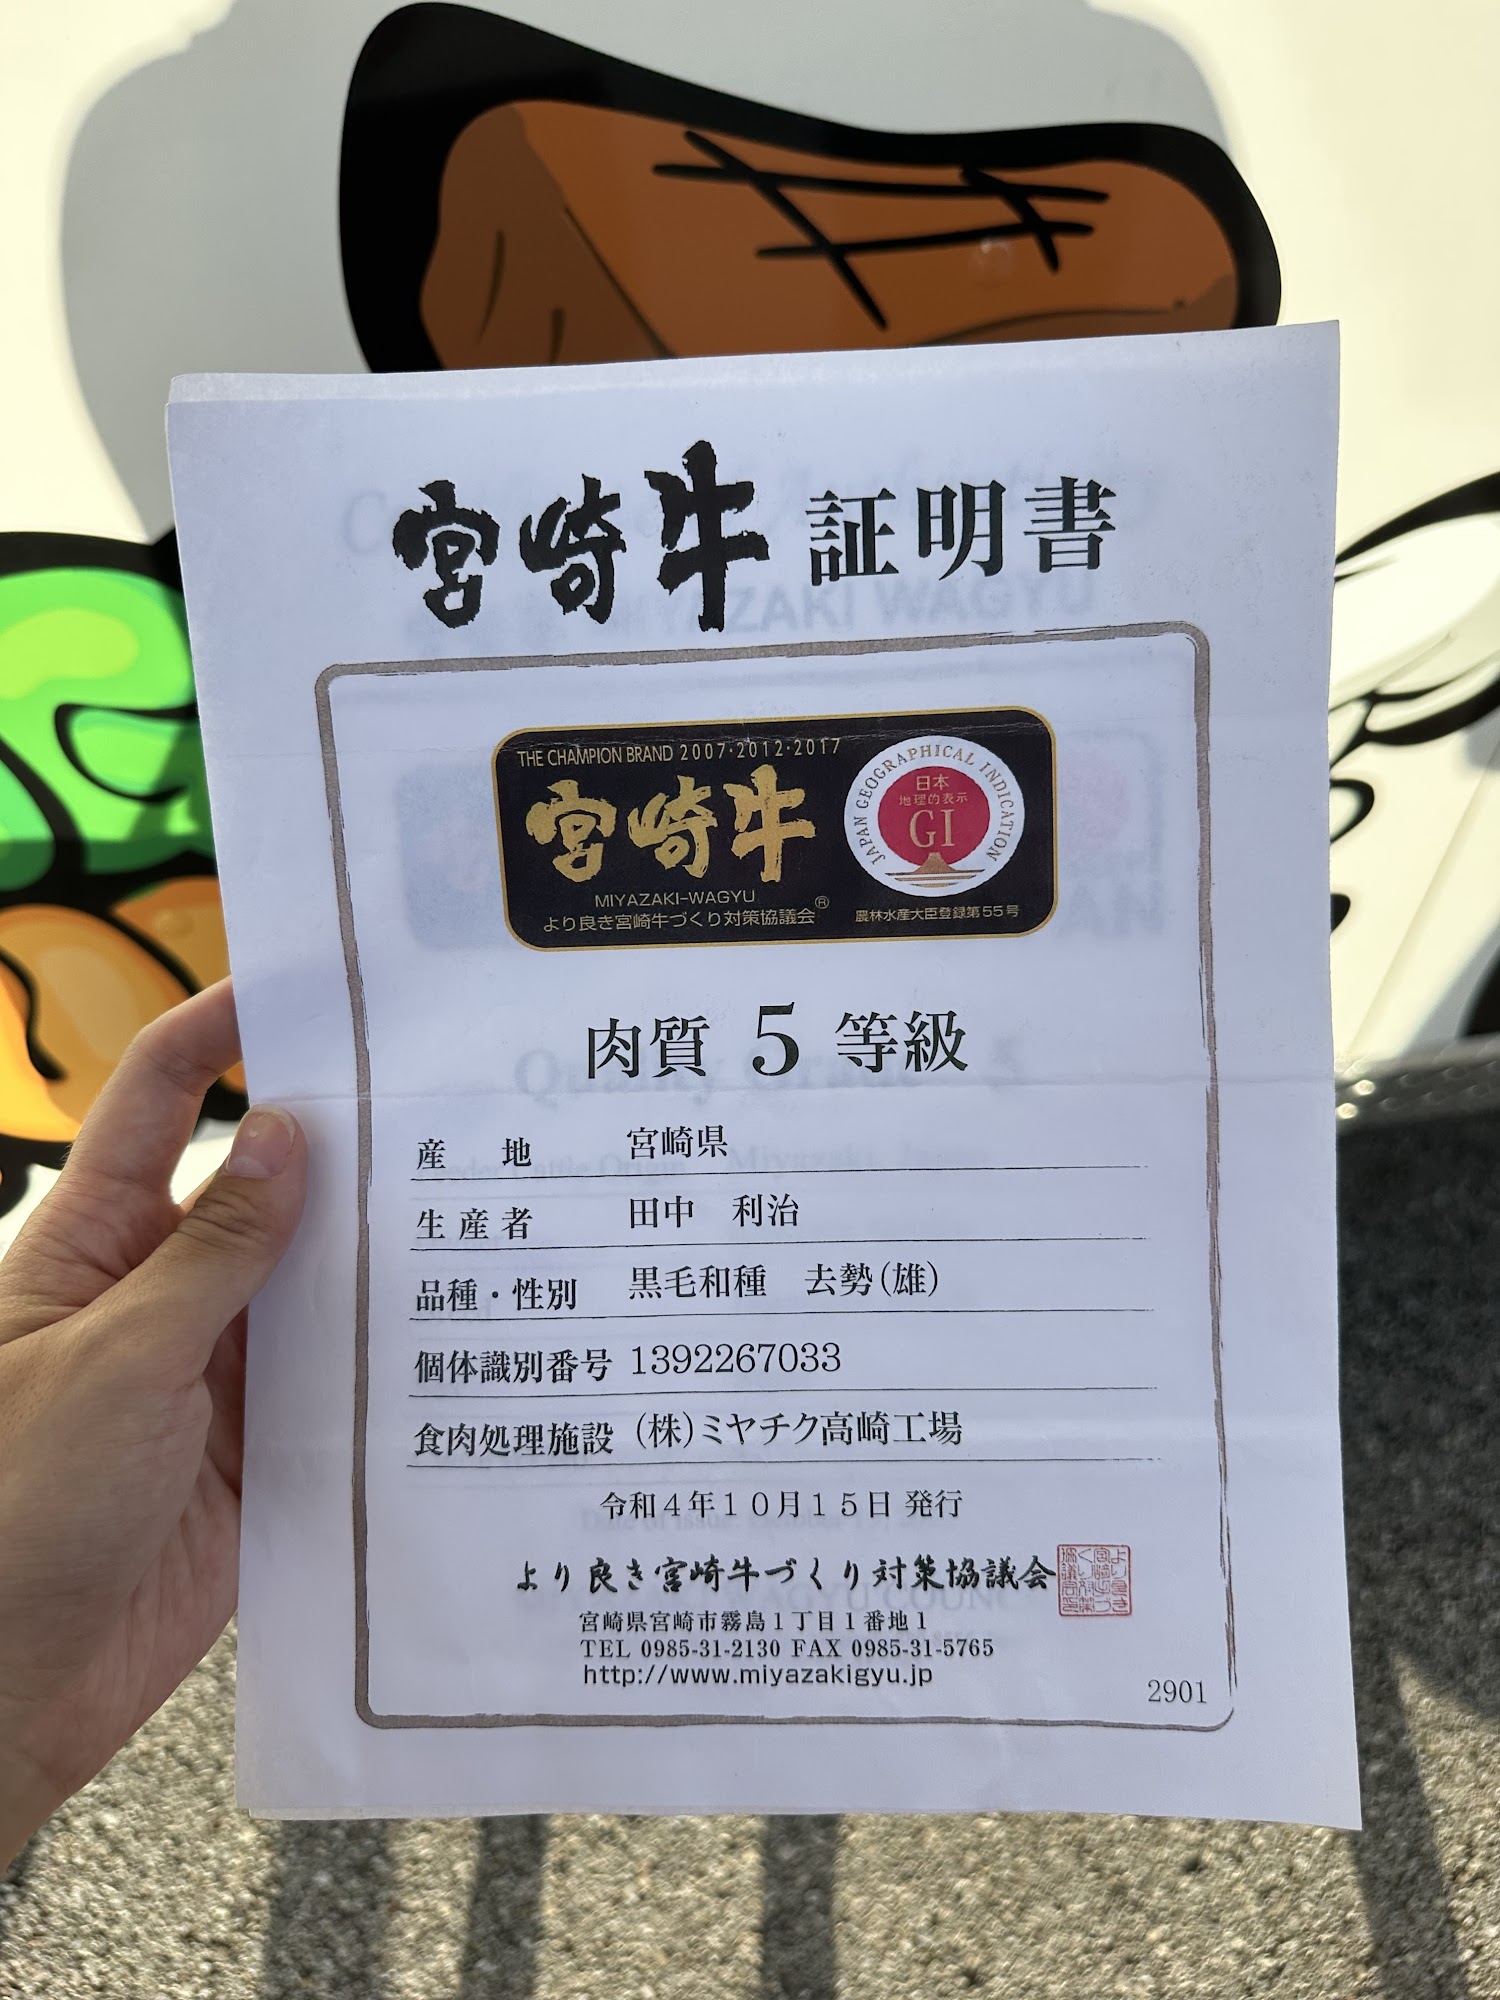 宮崎牛 証明書
THE CHAMPION BRAND 2007・2012・2017
宮崎牛
MIYAZAKI-WAGYU ®
より良き宮崎牛づくり対策協議会
JAPAN GEOGRAPHICAL INDICATION
日本
地理的表示
GI
農林水産大臣登録第55号
肉質 5 等級
産 地 宮崎県
生産者 田中 利治
品種・性別 黒毛和種 去勢(雄)
個体識別番号 1392267033
食肉処理施設 (株)ミヤチク高崎工場
令和4年10月15日 発行
より良き宮崎牛づくり対策協議会
宮崎県宮崎市霧島1丁目1番地1
TEL 0985-31-2130 FAX 0985-31-5765
http://www.miyazakigyu.jp
2901